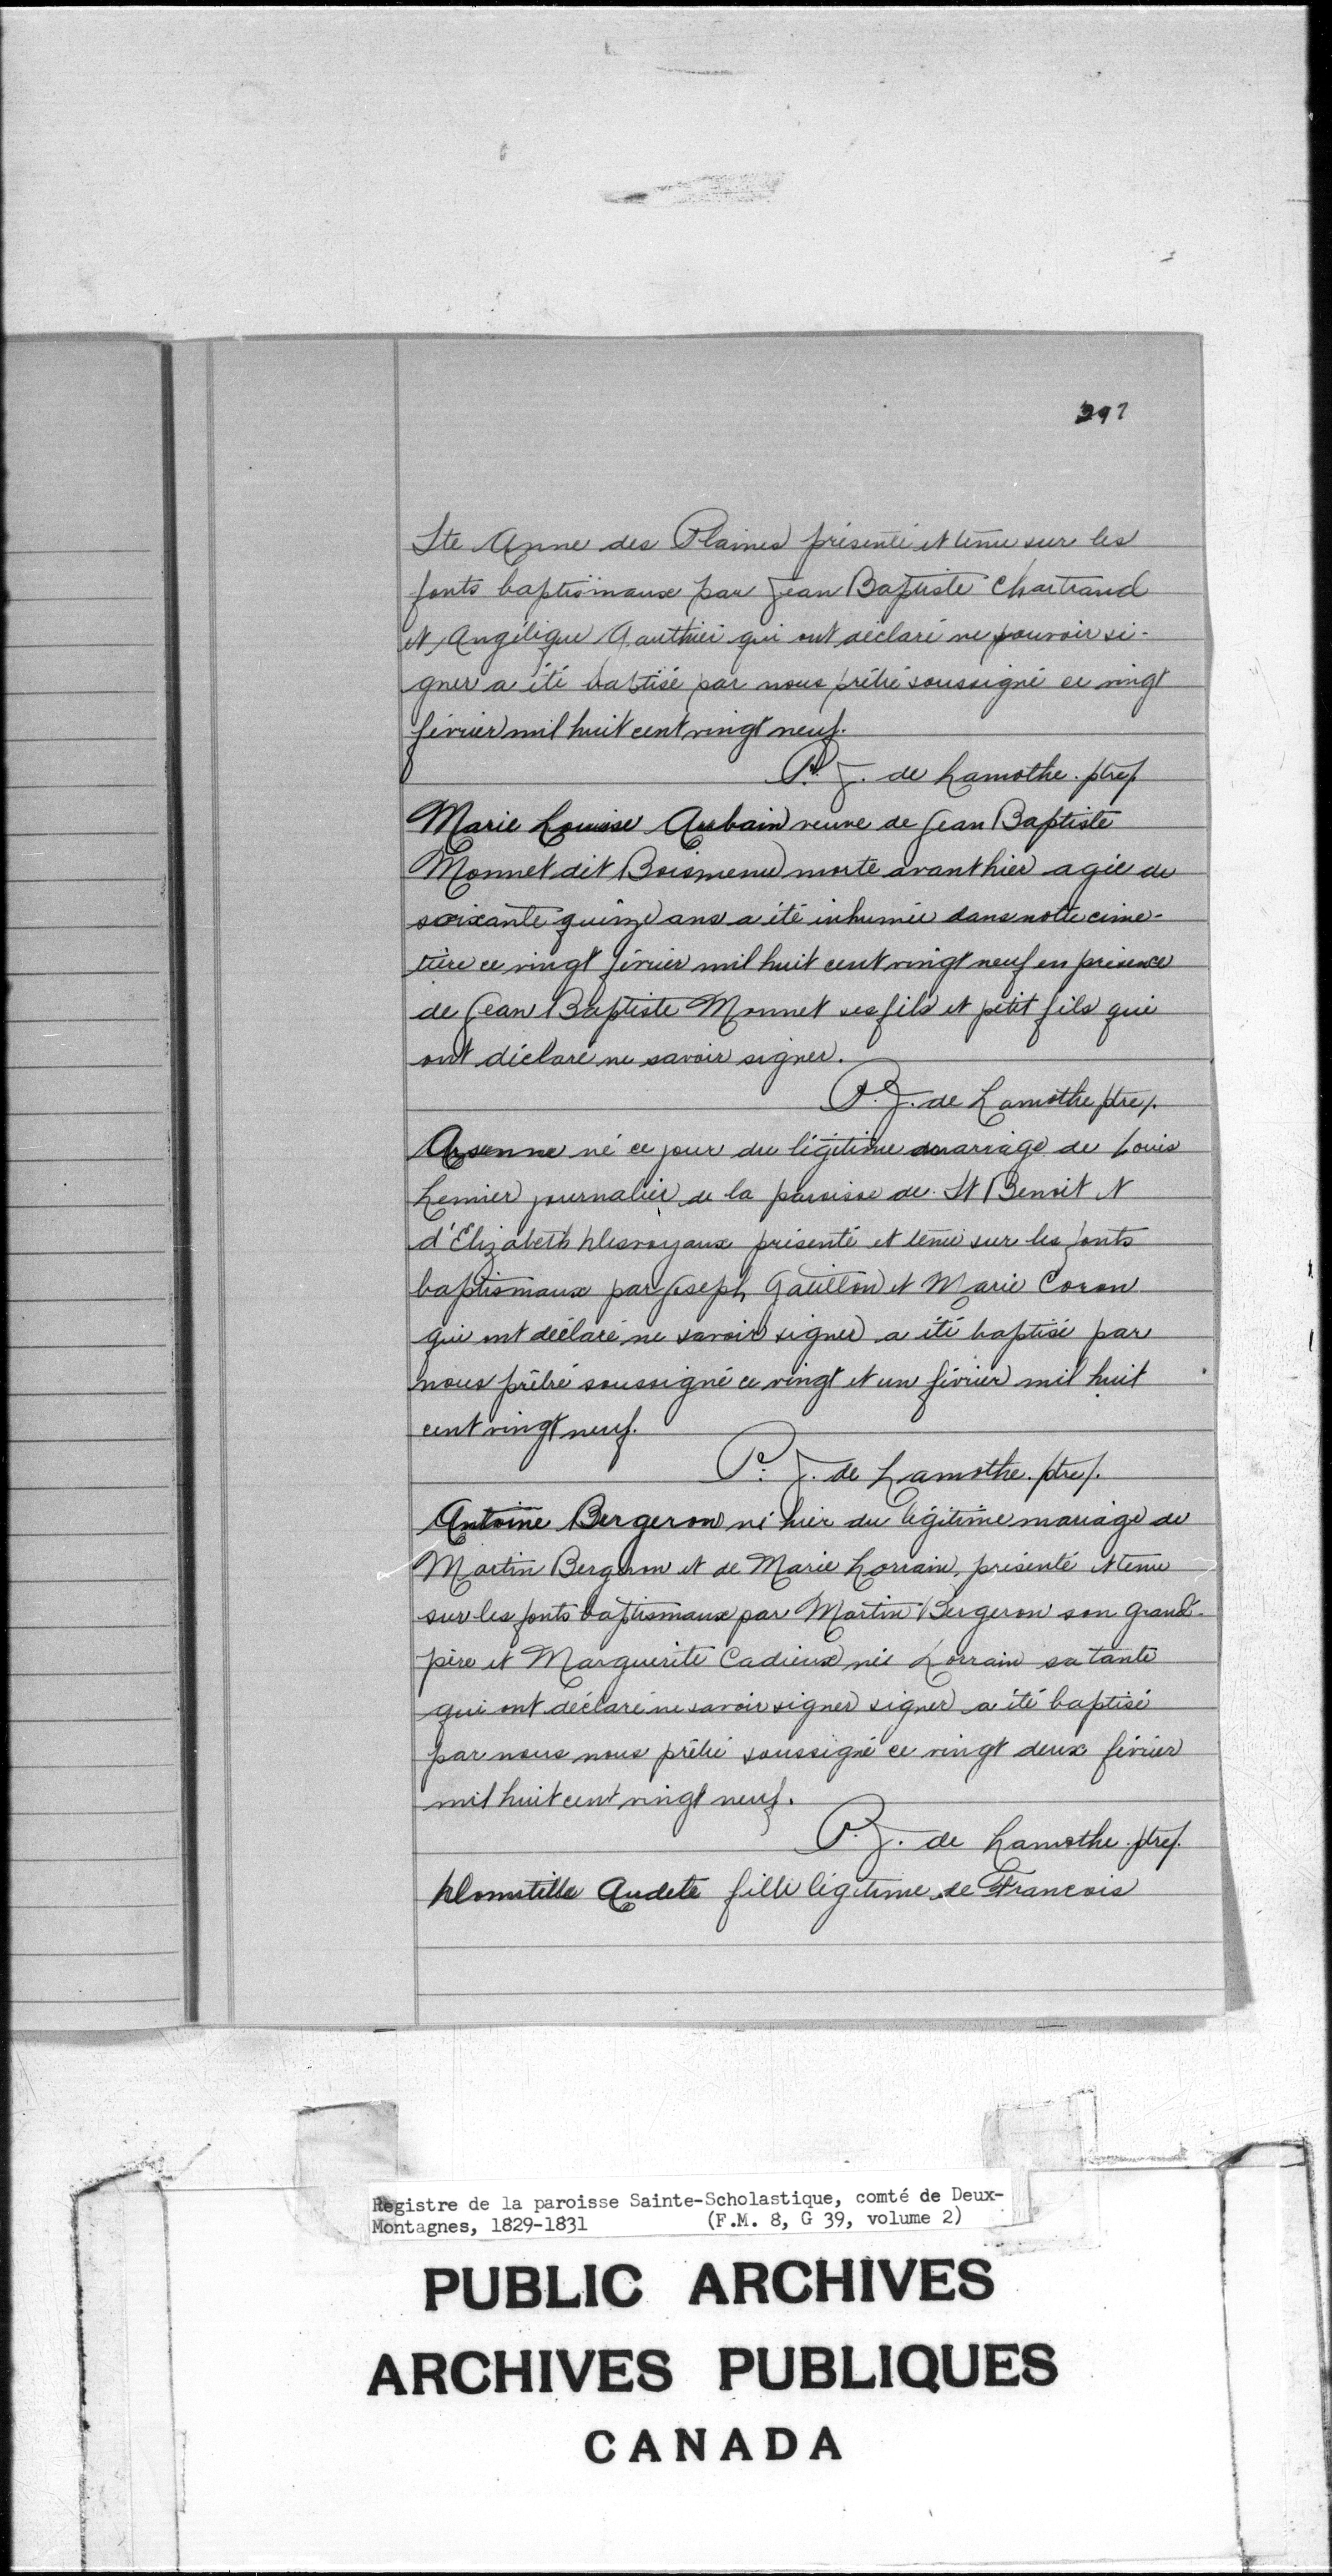 297
Ste Anne des Plaines présenté et tenu sur les
fonts baptismaux par Jean Baptiste Chartrand
et Angélique Gauthier qui ont déclaré ne pouvoir si-
gner a été baptisé par nous prêtre soussigné ce vingt
février mil huit cent vingt neuf.
P. J. de Lamothe. ptre
Marie Louise Aubain veuve de Jean Baptiste
Monnet dit Boismenu morte avanthier agée de
soixante quinze ans a été inhumée dans notre cime-
tière ce vingt février mil huit cent vingt neuf en présence
de Jean Baptiste Monnet ses fils et petit fils qui
ont déclaré ne savoir signer.
P. J. de Lamothe ptre.
Arsenne né ce jour du légitime mariage de Louis
Lemier journalier de la paroisse de St Benoit et
d'Elizabeth Desvoyaux présenté et tenu sur les fonts
baptismaux par Joseph et Marie Coron
qui ont déclaré ne savoir signer a été baptisé par
nous prêtre soussigné ce vingt et un février mil huit
cent vingt neuf.
P. J. de Lamothe. ptre.
Antoine Bergeron né hier du légitime mariage de
Martin Bergeron et de Marie Lorrain, présenté et tenu
sur les fonts baptismaux par Martin Bergeron son grand-
père et Marguerite Cadieux née Lorrain sa tante
qui ont déclaré ne savoir signer signer a été baptisé
par nous nous prêtre soussigné ce vingt deux février
mil huit cent vingt neuf.
P. J. de Lamothe. ptre.
Domitille Audete fille légitime de Francois
Registre de la paroisse Sainte-Scholastique, comté de Deux-
Montagnes, 1829-1831 (F.M. 8, G 39, volume 2)
PUBLIC ARCHIVES
ARCHIVES PUBLIQUES
CANADA